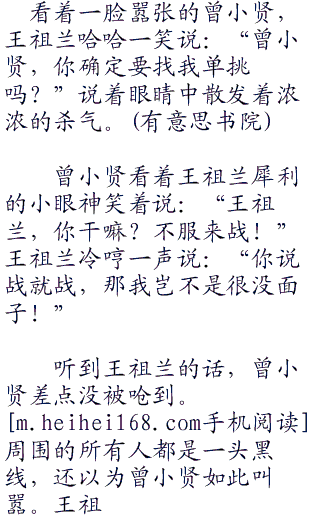 看着一脸嚣张的曾小贤，
王祖兰哈哈一笑说：“曾小
贤，你确定要找我单挑
吗？”说着眼睛中散发着浓
浓的杀气。(有意思书院)
曾小贤看着王祖兰犀利
的小眼神笑着说：“王祖
兰，你干嘛？不服来战！”
王祖兰冷哼一声说：“你说
战就战，那我岂不是很没面
子！”
听到王祖兰的话，曾小
贤差点没被呛到。
[m.heihei168.com手机阅读]
周围的所有人都是一头黑
线，还以为曾小贤如此叫
嚣。王祖